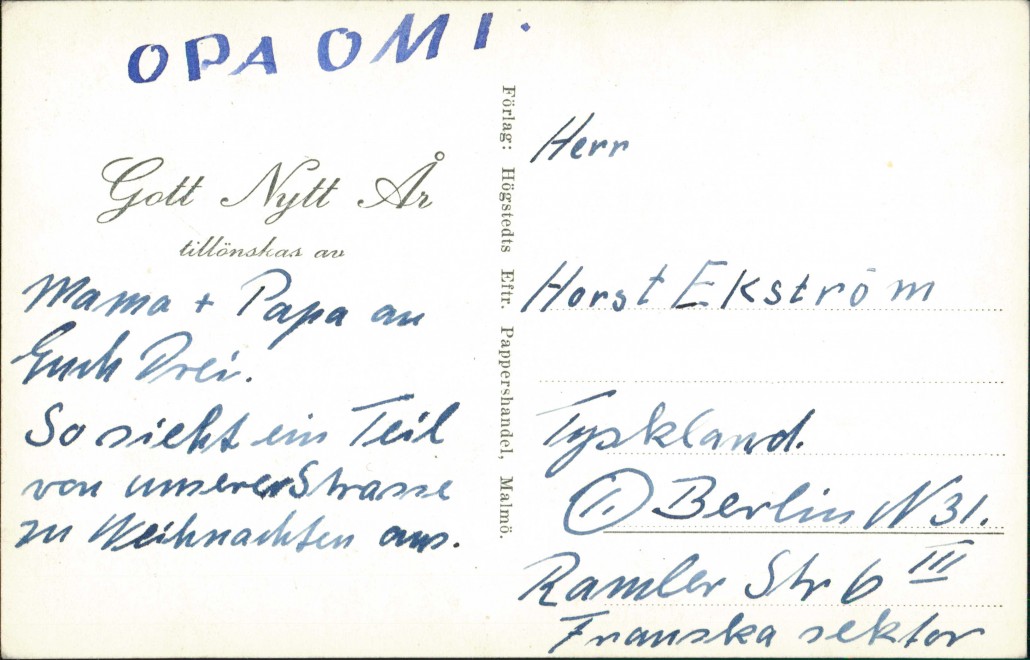 OPA OMI.
Gott Nytt År
tillönskas av
Mama + Papa an
Euch Drei.
So sieht ein Teil
von unserer Strasse
zu Weihnachten aus.
Förlag: Högstedts Eftr. Pappershandel, Malmö.
Herr
Horst Ekström
Tyskland.
1. Berlin N 31.
Ramler Str 6 III
Franska sektor